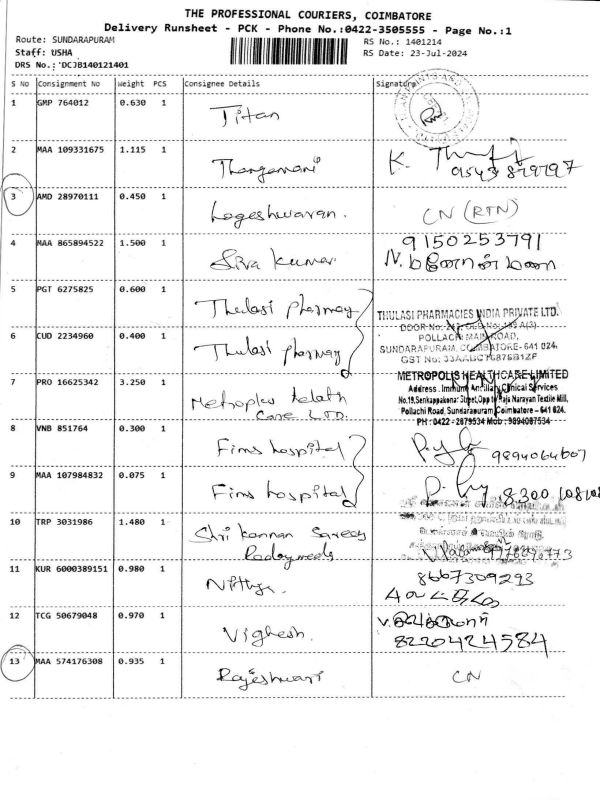 THE PROFESSIONAL COURIERS, COIMBATORE
Delivery Runsheet - PCK - Phone No.:0422-3505555 - Page No.:1
Route: SUNDARAPURAM
RS No.: 1401214
Staff: USHA
RS Date: 23-Jul-2024
DRS No.: DCJB140121401
S No Consignment No Weight PCS Consignee Details Signature
1 GMP 764012 0.630 1 Titan
2 MAA 109331675 1.115 1 Thangamani K.
3 AMD 28970111 0.450 1 Logeshwaran. CN (RTN)
4 MAA 865894522 1.500 1 Siva Kumar 9150253791
5 PGT 6275825 0.600 1 Thulasi pharmay
THULASI PHARMACIES INDIA PRIVATE LTD.
6 CUD 2234960 0.400 1 Thulasi pharmay
POLLACHI MAIN ROAD,
SUNDARAPURAM, COIMBATORE- 641 024.
7 PRO 16625342 3.250 1 Metroples helath
Care LTD.
METROPOLIS HEALTHCARE LIMITED
Address : Immunt Ancillary Clinical Services
No.19,Senkappakonar Street,Opp to Raja Narayan Textile Mill,
Pollachi Road, Sundarapuram Coimbatore – 641 024.
PH : 0422 - 2879534 Mob : 9894087534
8 VNB 851764 0.300 1 Fims hospital
9 MAA 107984832 0.075 1 Fims hospital
10 TRP 3031986 1.480 1 Shri Kannan Sarees
Readymeeds
11 KUR 6000389151 0.980 1 Nithya 8667309293
12 TCG 50679048 0.970 1 Vighesh. 8220424584
13 MAA 574176308 0.935 1 Rajeshwari CN